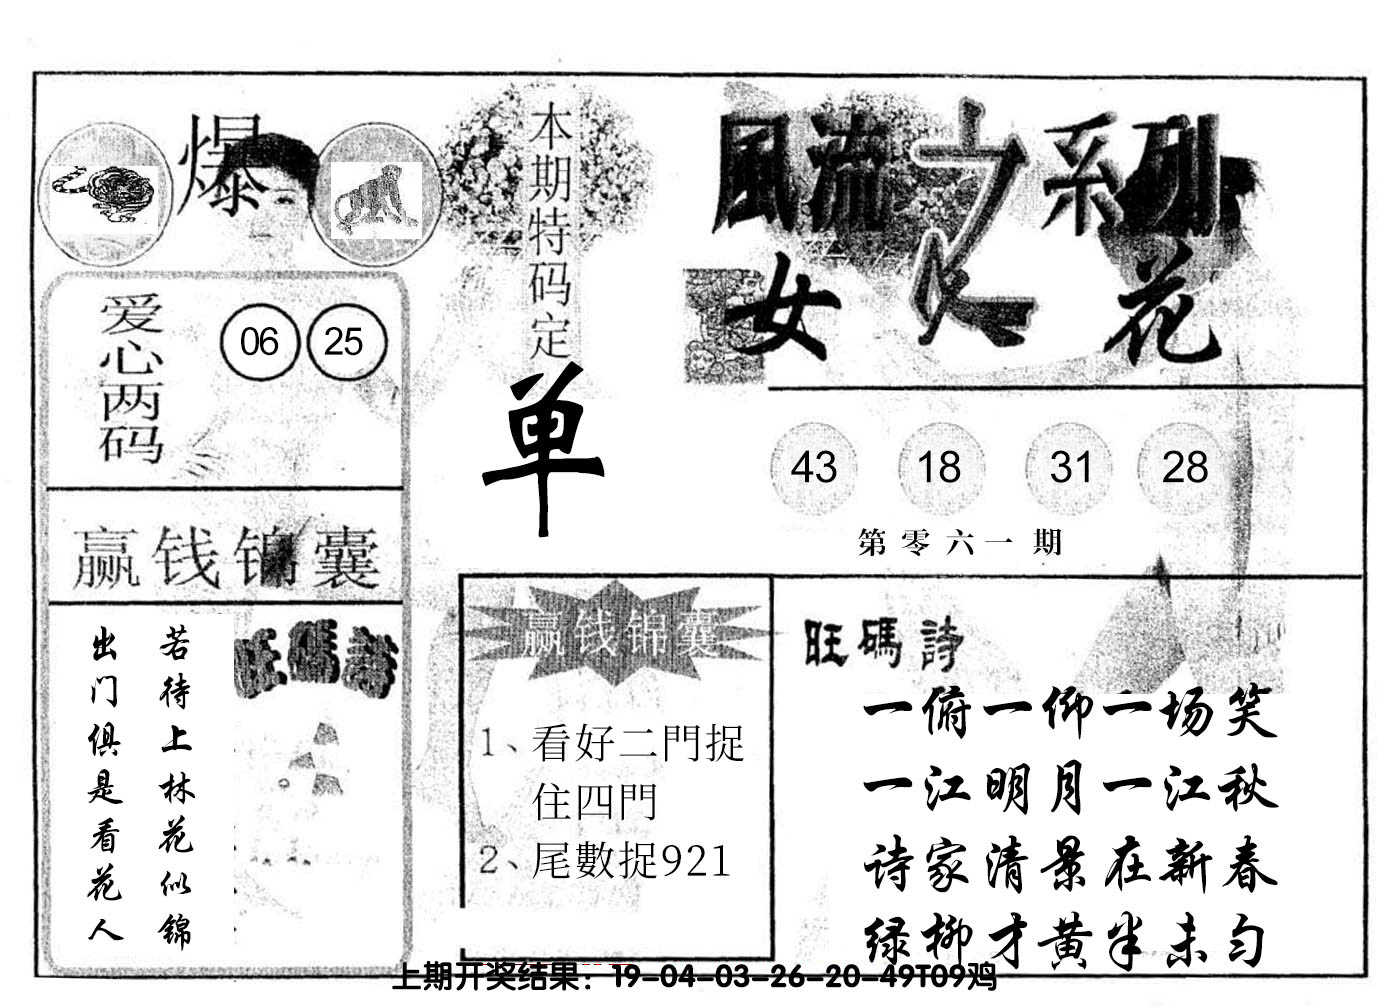 爆
本期特码定
单
風流之系列
女人花
爱心两码
06 25
43 18 31 28
第零六一期
赢钱锦囊
若待上林花似锦
出门俱是看花人
旺碼詩
赢钱锦囊
1、看好二門捉
住四門
2、尾數捉921
旺碼詩
一俯一仰一场笑
一江明月一江秋
诗家清景在新春
绿柳才黄半未匀
上期开奖结果：19-04-03-26-20-49T09鸡